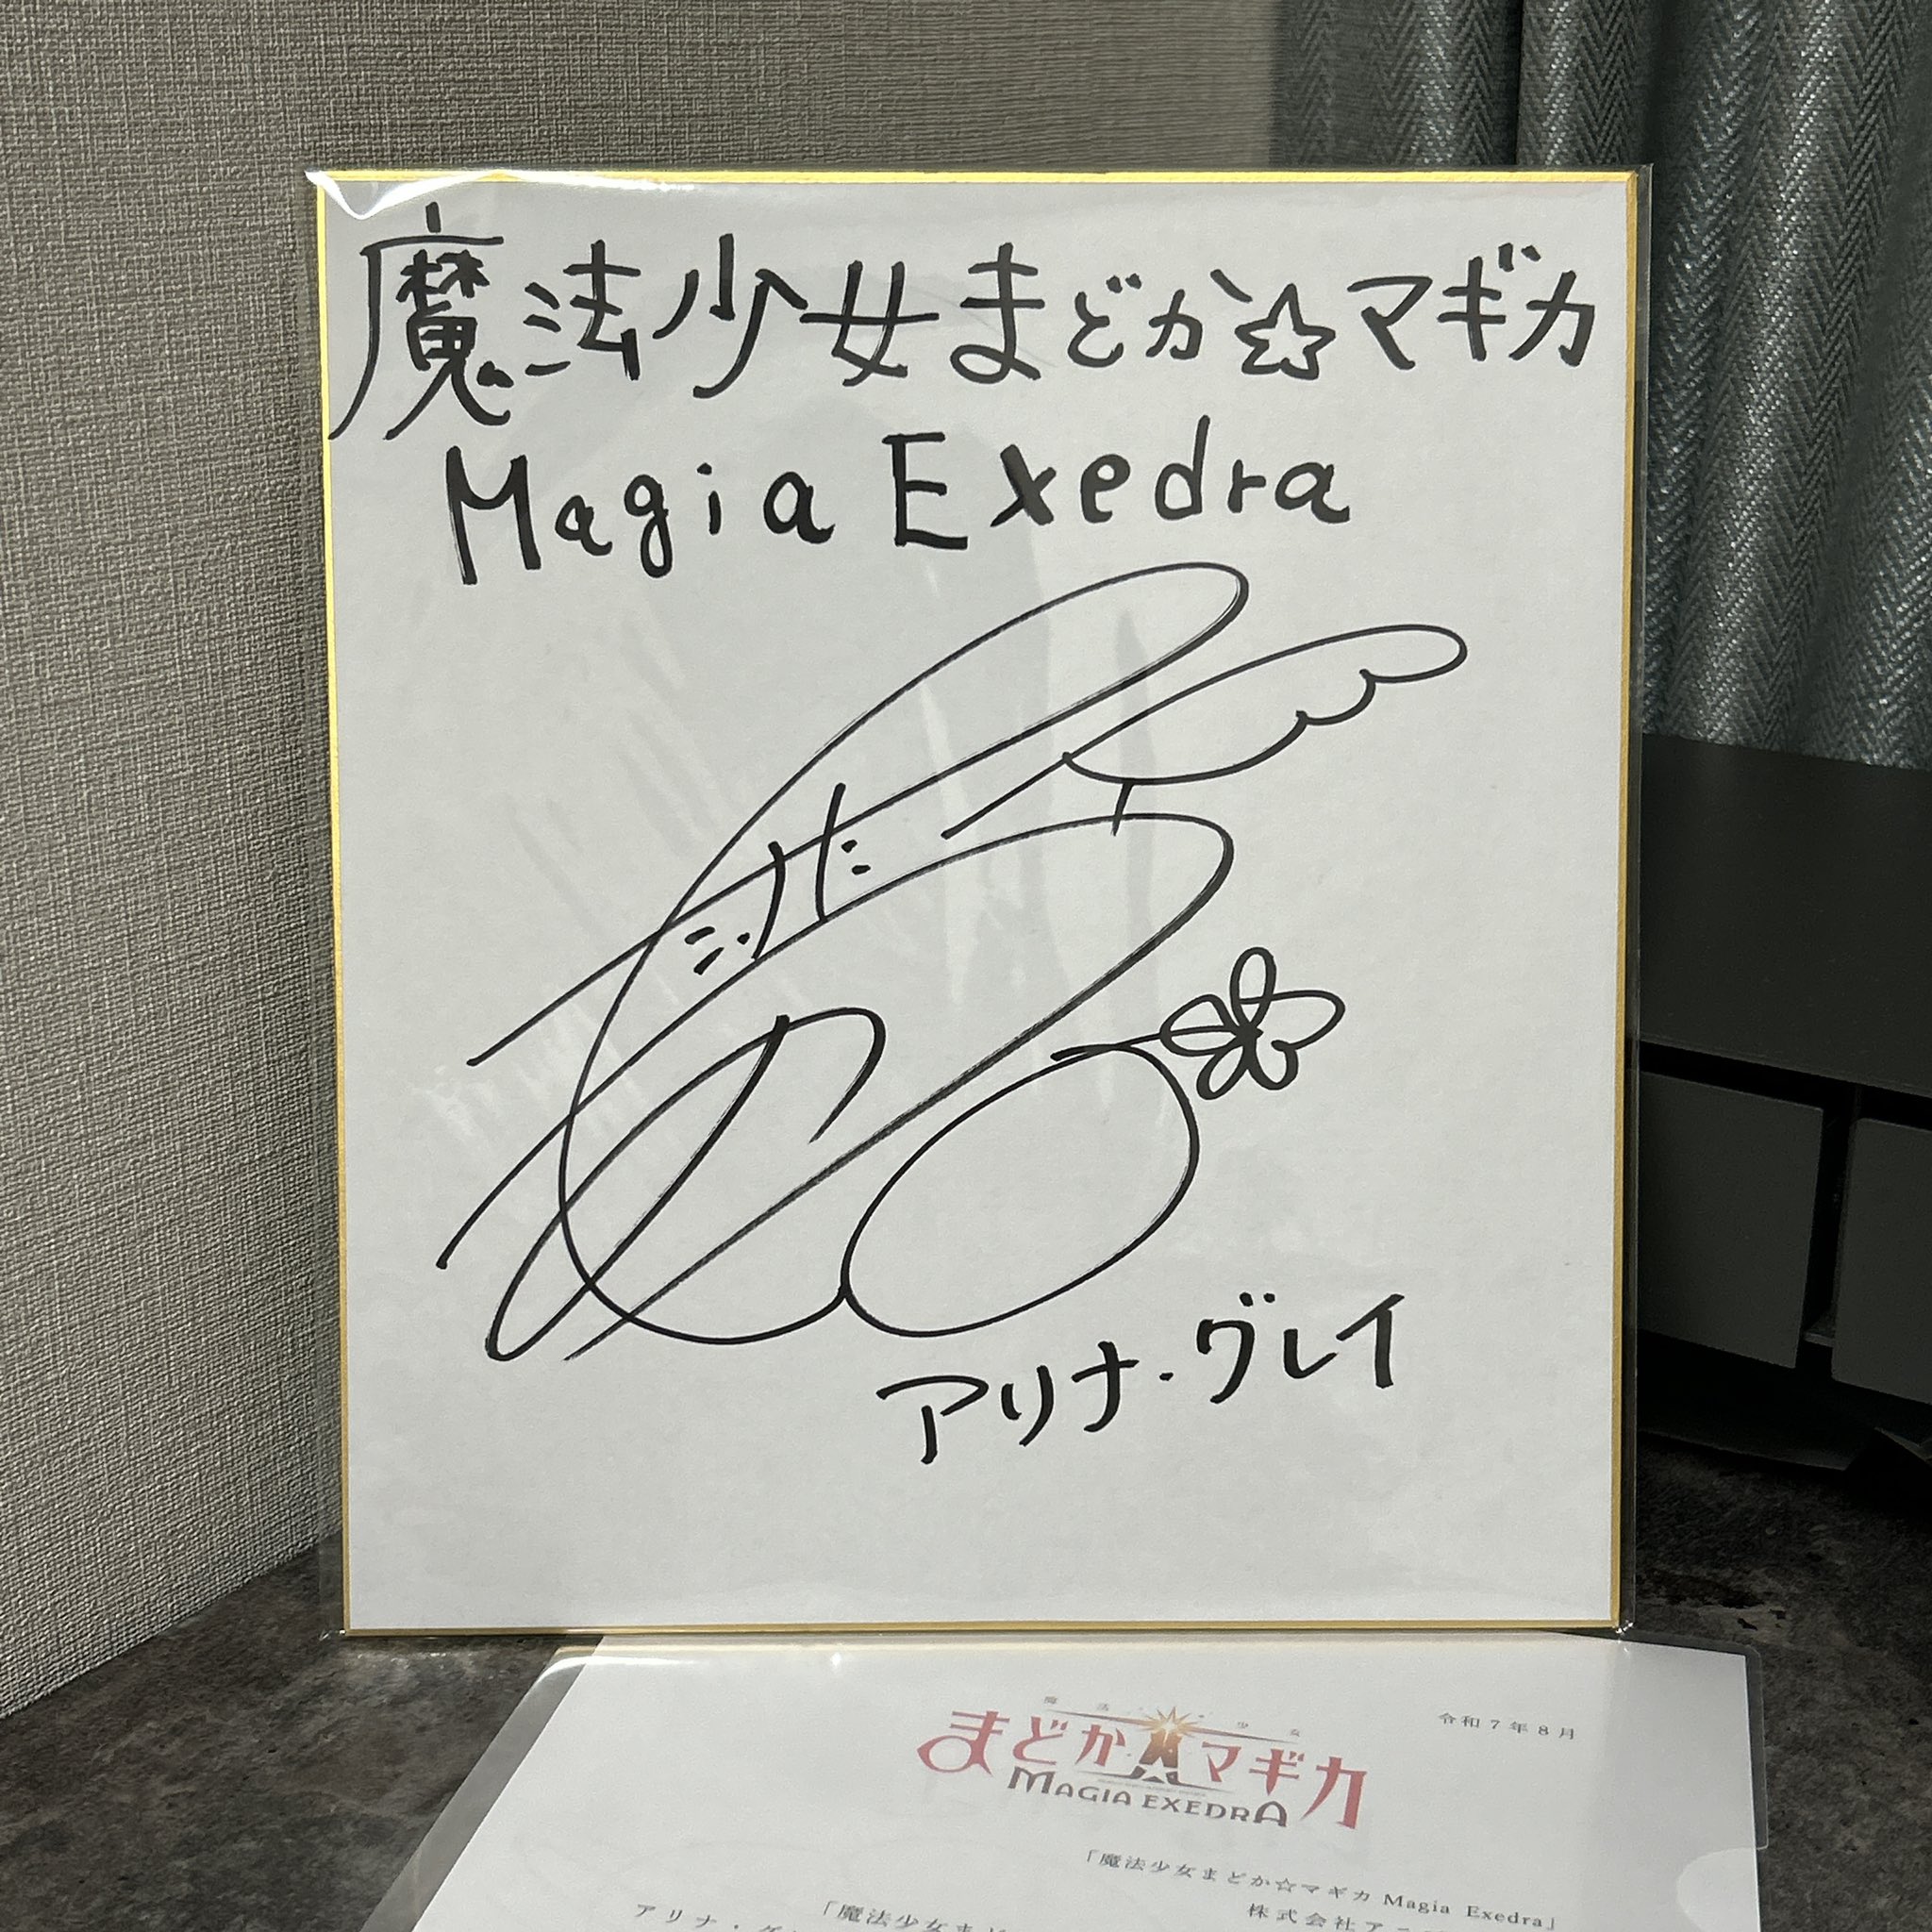 魔法少女まどか☆マギカ
Magia Exedra
アリナ・グレイ
令和7年8月
魔法少女
まどか マギカ
MAGIA EXEDRA
「魔法少女まどか☆マギカ Magia Exedra」
株式会社ア
「魔法少女まど
アリナ・グ